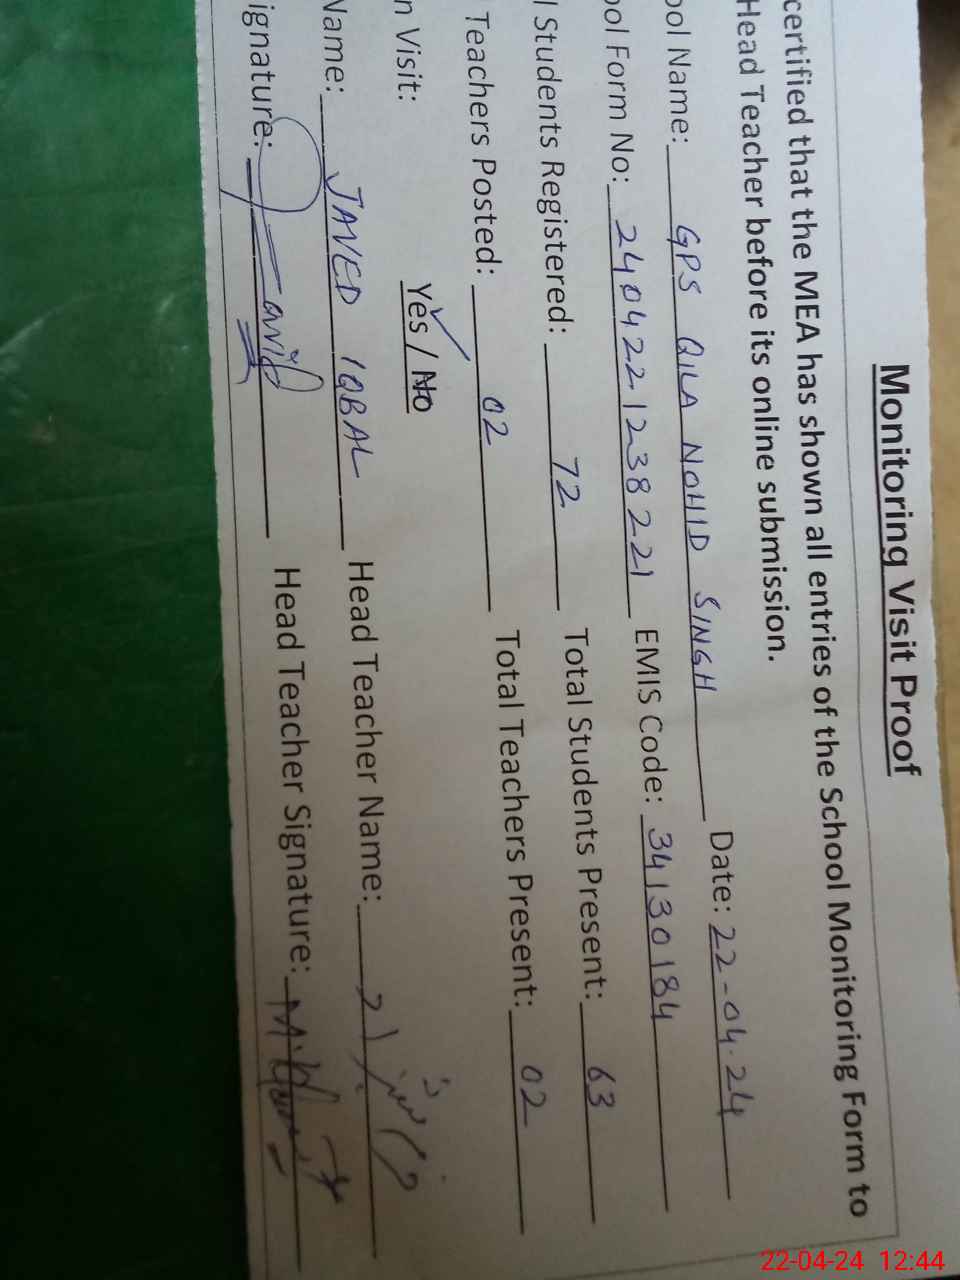 Monitoring Visit Proof
certified that the MEA has shown all entries of the School Monitoring Form to
Head Teacher before its online submission.
ool Name: GPS QILA NOHID SINGH Date: 22-04-24
ool Form No: 2404221238221 EMIS Code: 34130184
l Students Registered: 72 Total Students Present: 63
Teachers Posted: 02 Total Teachers Present: 02
n Visit: Yes / No
Name: JAVED IQBAL Head Teacher Name:
ignature: Javid Head Teacher Signature:
22-04-24 12:44